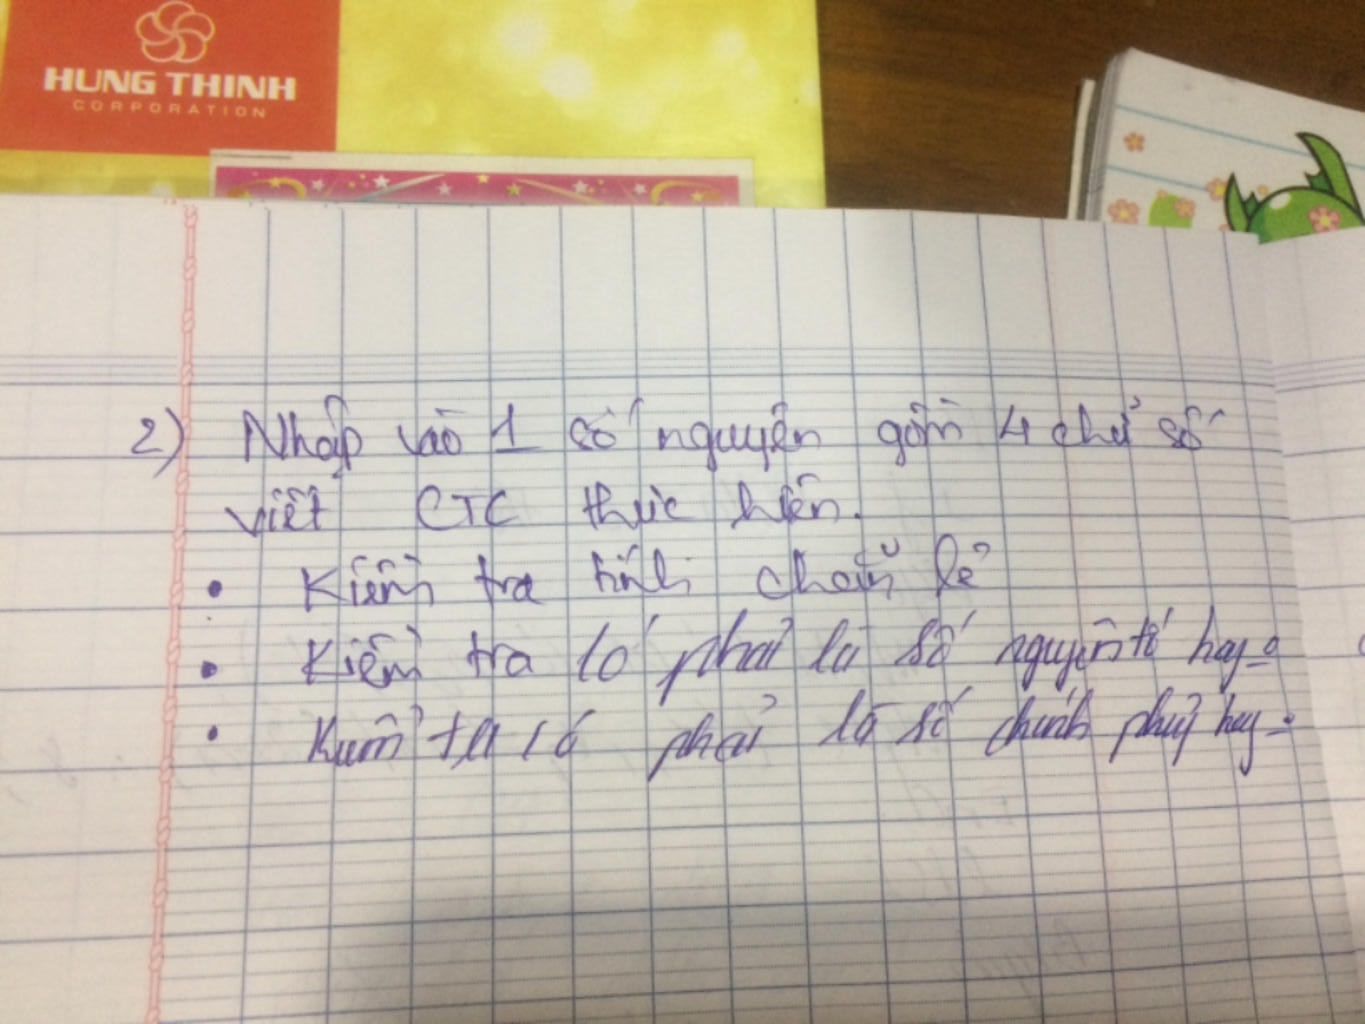 HUNG THINH
CORPORATION
2) Nhập vào 1 số nguyên gồm 4 chử số
viết CTC thực hiện.
• Kiểm tra tính chẵn lẻ
• Kiểm tra có phải là số nguyên tố hay
• Kiểm tra có phải là số chính phủ hay